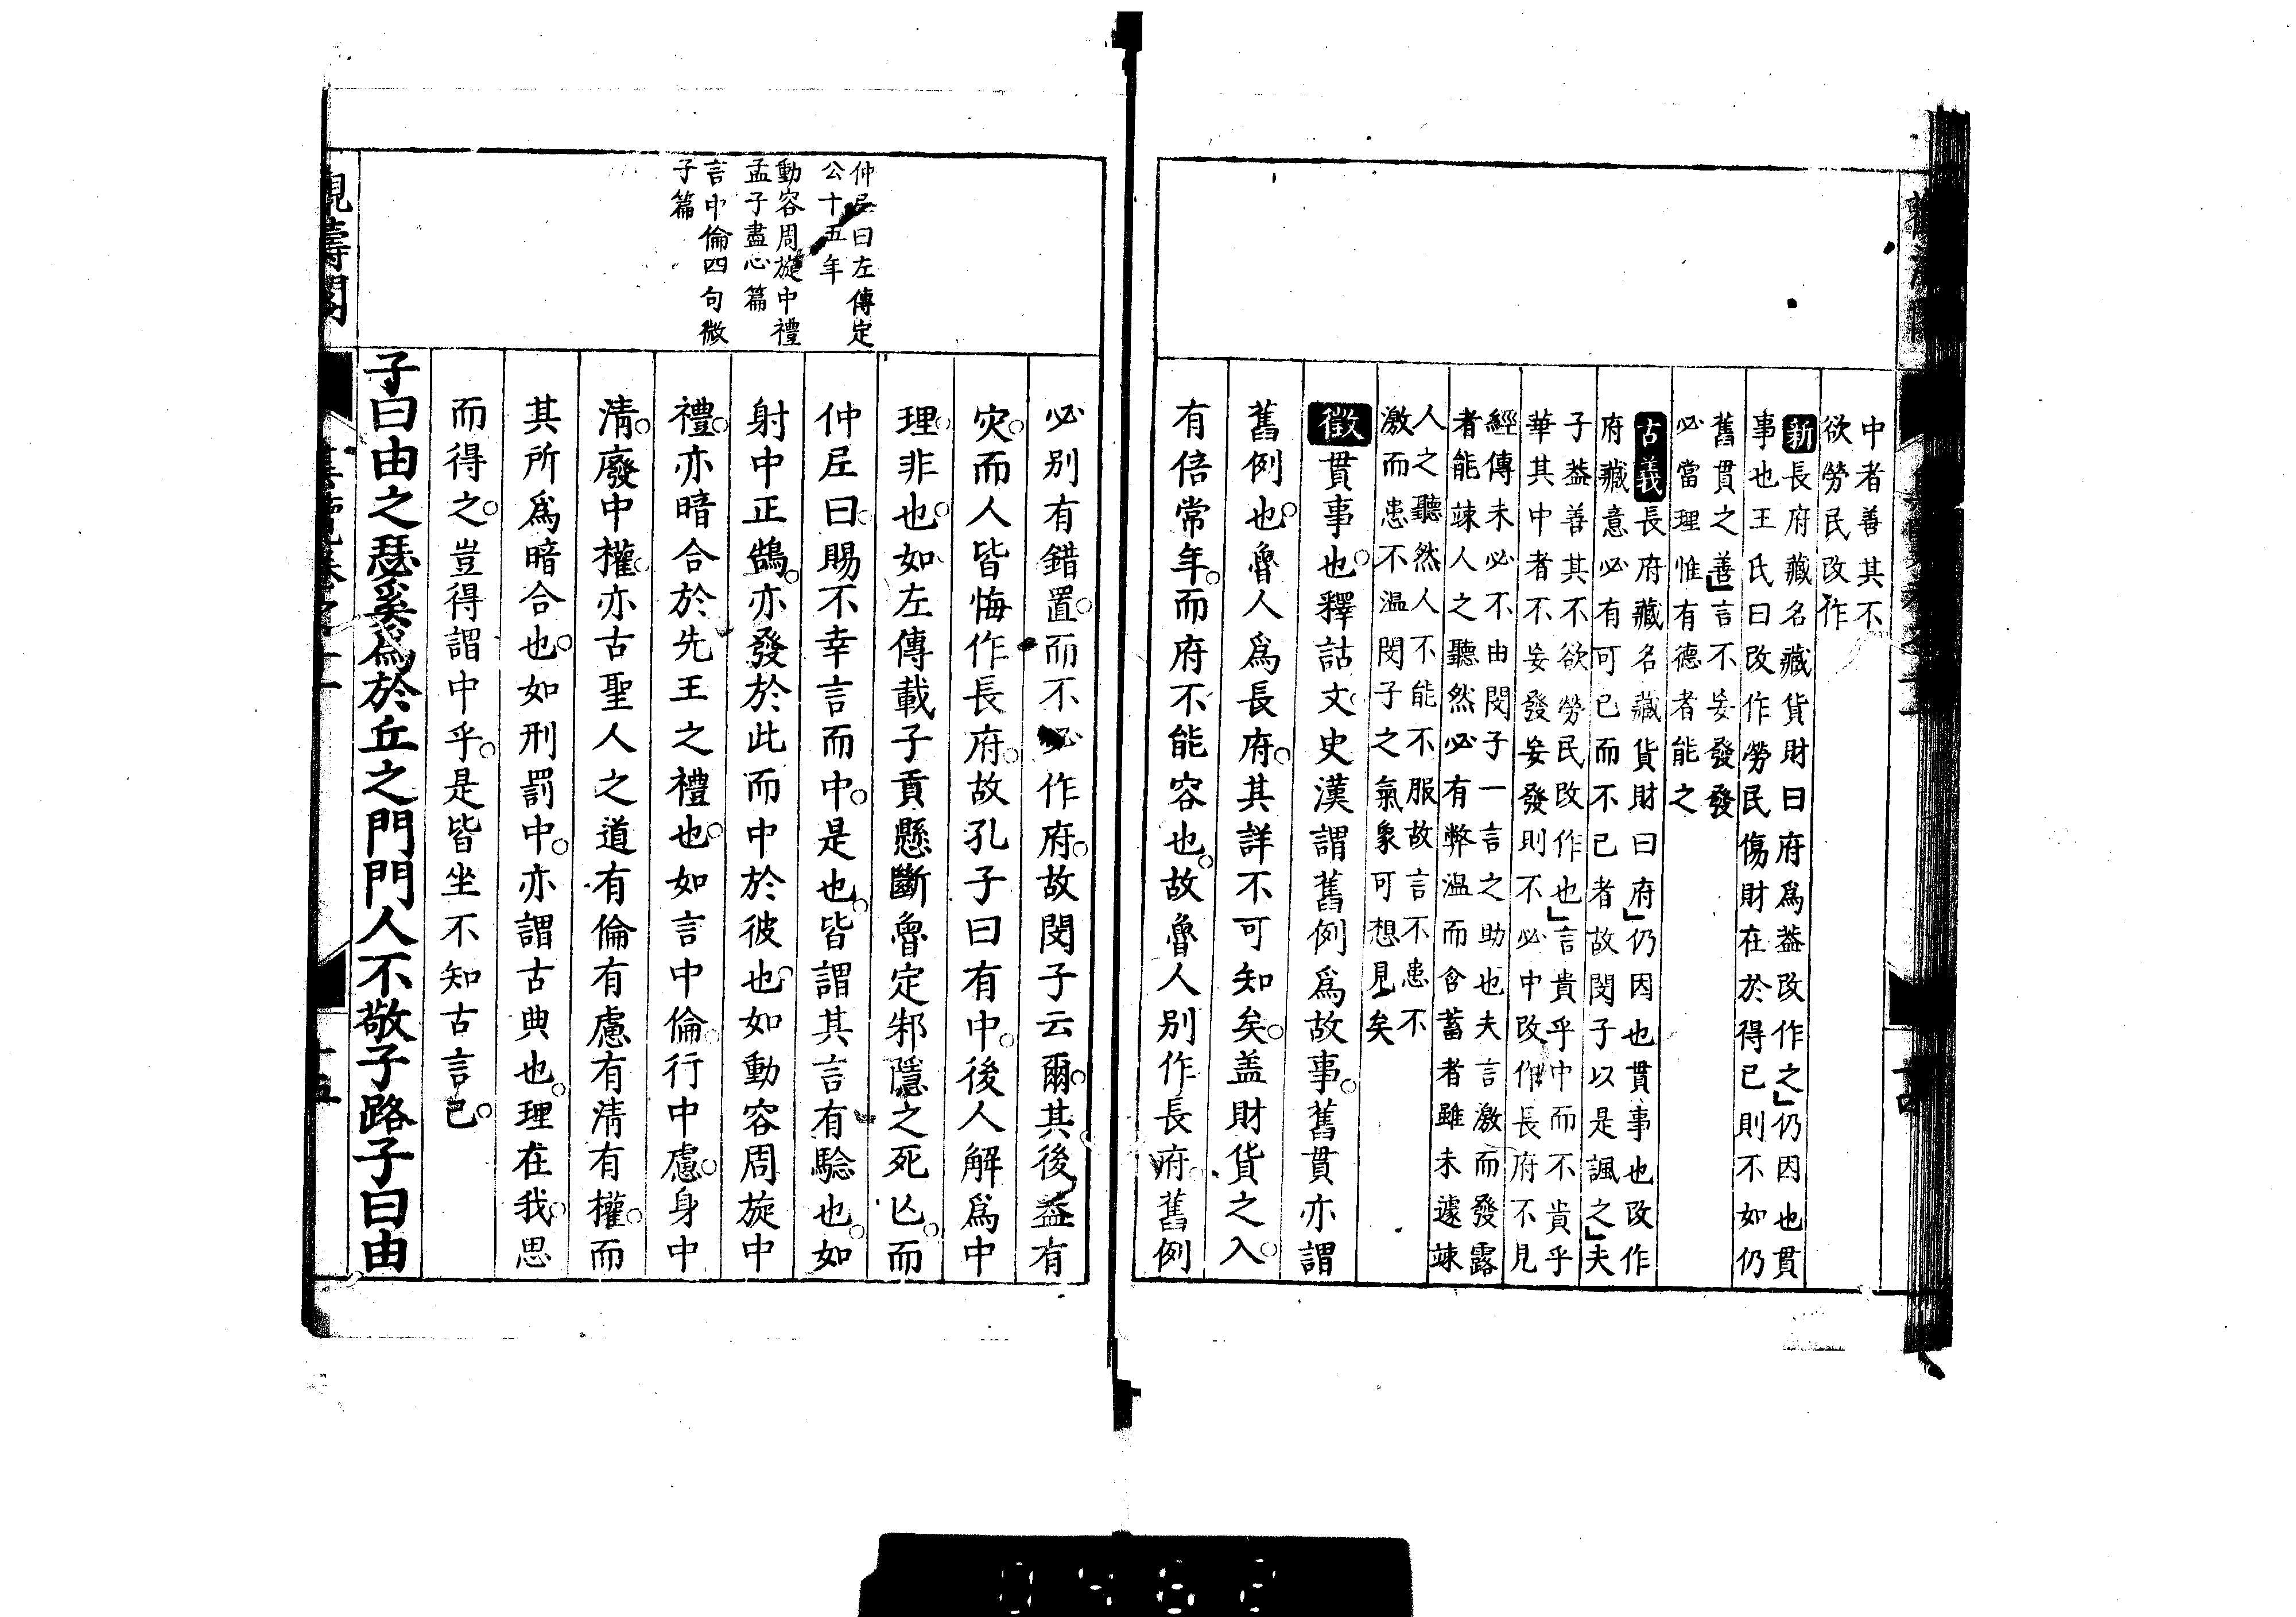 中者善其不
欲勞民改作
新長府藏名藏貨財曰府爲益改作之仍因也貫
事也王氏曰改作勞民傷財在於得已則不如仍
舊貫之善言不妄發發
必當理惟有德者能之
古義長府藏名藏貨財曰府仍因也貫事也改作
府藏意必有可已而不已者故閔子以是諷之夫
子益善其不欲勞民改作也言貴乎中而不貴乎
華其中者不妄發妄發則不必中改作長府不見
經傳未必不由閔子一言之助也夫言激而發露
者能竦人之聽然必有弊溫而含蓄者雖未遽竦
人之聽然人不能不服故言不患不
激而患不溫閔子之氣象可想見矣
徵貫事也釋詁文史漢謂舊例爲故事舊貫亦謂
舊例也魯人爲長府其詳不可知矣盖財貨之入
有倍常年而府不能容也故魯人別作長府舊例
仲尼曰左傳定
公十五年
動容周旋中禮
孟子盡心篇
言中倫四句微
子篇
必别有錯置而不必作府故閔子云爾其後益有
灾而人皆悔作長府故孔子曰有中後人解爲中
理非也如左傳載子貢懸斷魯定邾隱之死亾而
仲尼曰賜不幸言而中是也皆謂其言有驗也如
射中正鵠亦發於此而中於彼也如動容周旋中
禮亦暗合於先王之禮也如言中倫行中慮身中
清廢中權亦古聖人之道有倫有慮有清有權而
其所爲暗合也如刑罰中亦謂古典也理在我思
而得之豈得謂中乎是皆坐不知古言已
子曰由之瑟奚爲於丘之門門人不敬子路子曰由
觀濤閣
十五
0482